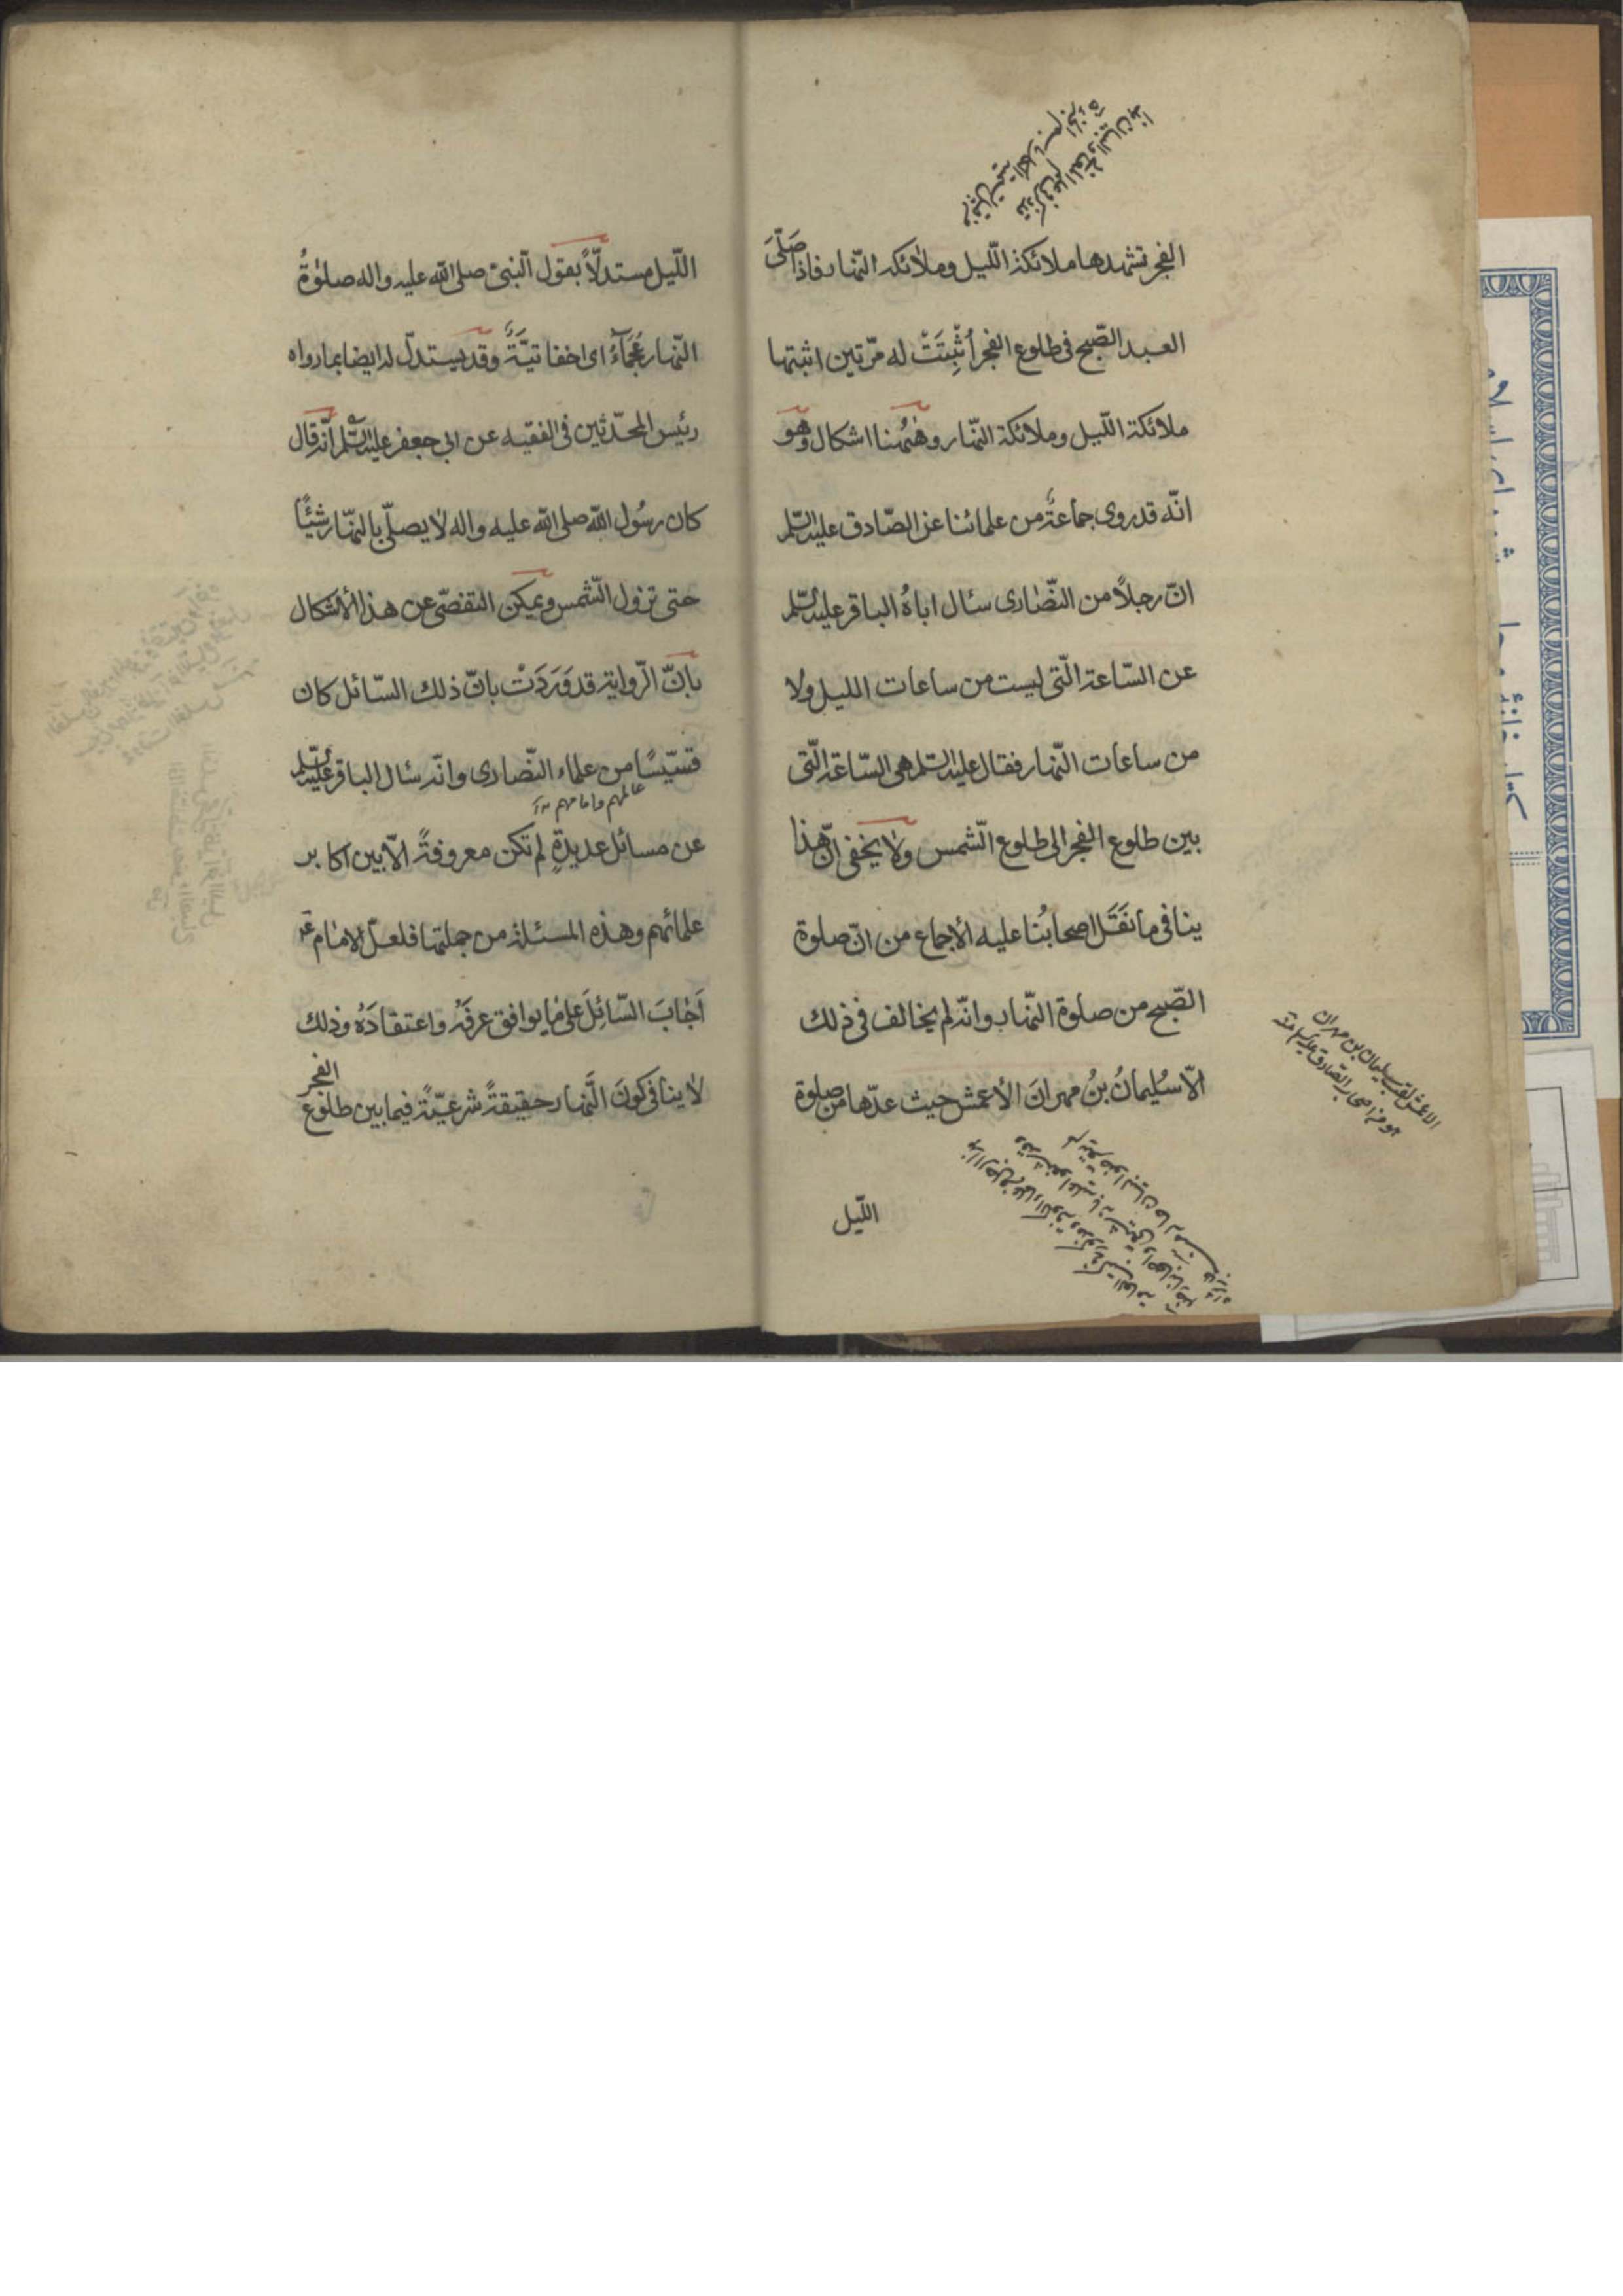 الفجر تشهدها ملائكة اللّيل وملائكة النّهار فاذا صَلَّى
العبد الصّبح فى طلوع الفجر أُثْبِتَتْ له مرّتين اثبتها
ملائكة اللّيل وملائكة النّهار وهٰهُنا اشكال وهو
انّه قد روى جماعةٌ من علمائنا عن الصّادق عليه السّلم
انّ رجلاً من النّصٰارى سئال اباهُ الباقر عليه السّلم
عن السّاعة الّتى ليست من ساعات الليل ولا
من ساعات النّهار فقال عليه السّلم هى السّاعة الّتى
بين طلوع الفجر الى طلوع الشّمس ولا يخفى انّ هذا
ينافى ما نَقَلَ اصحابُنا عليه الأجماع من انّ صلوة
الصّبح من صلوة النّهار وانّه لم يخالف فى ذلك
الاّ سُليمانُ بنُ مهرانَ الأعمش حيث عدّها من صلوة
الليّل
الاعمش لقب سليمان بن مهران
هو من اصحاب الصّادق عليه السلام منه
اللّيل مستدلّاً بقول النّبىّ صلى الله عليه واله صلوٰةُ
النّهار عَجْمٰآءُ اى اخفاتيَّةٌ وقد يستدلّ له ايضا بما رواه
رئيس المحدّثين فى الفقيه عن ابى جعفر عليه السّلم انّه قال
كان رسُول الله صلى الله عليه واله لا يصلّى بالنّهار شيئًا
حتى تزول الشّمس ويمكن التفصّى عن هذا الأشكال
بانّ الرّواية قد وَرَدَتْ بانّ ذلك السّائل كان
قسّيسًا من علماء النّصارى وانّه سئال الباقر عليه السّلم
عالمهم وامامهم
عن مسائل عديدةٍ لم تكن معروفةً الاّ بين اكابر
علمائهم وهذه المسئلة من جملتها فلعلّ الامٰام ع
اَجٰابَ السّائِلَ على مٰا يوافق عرفَهُ واعتقادَهُ وذلك
لا ينافى كونَ النَّهار حقيقةً شرعيّةً فيما بين طلوع
الفجر